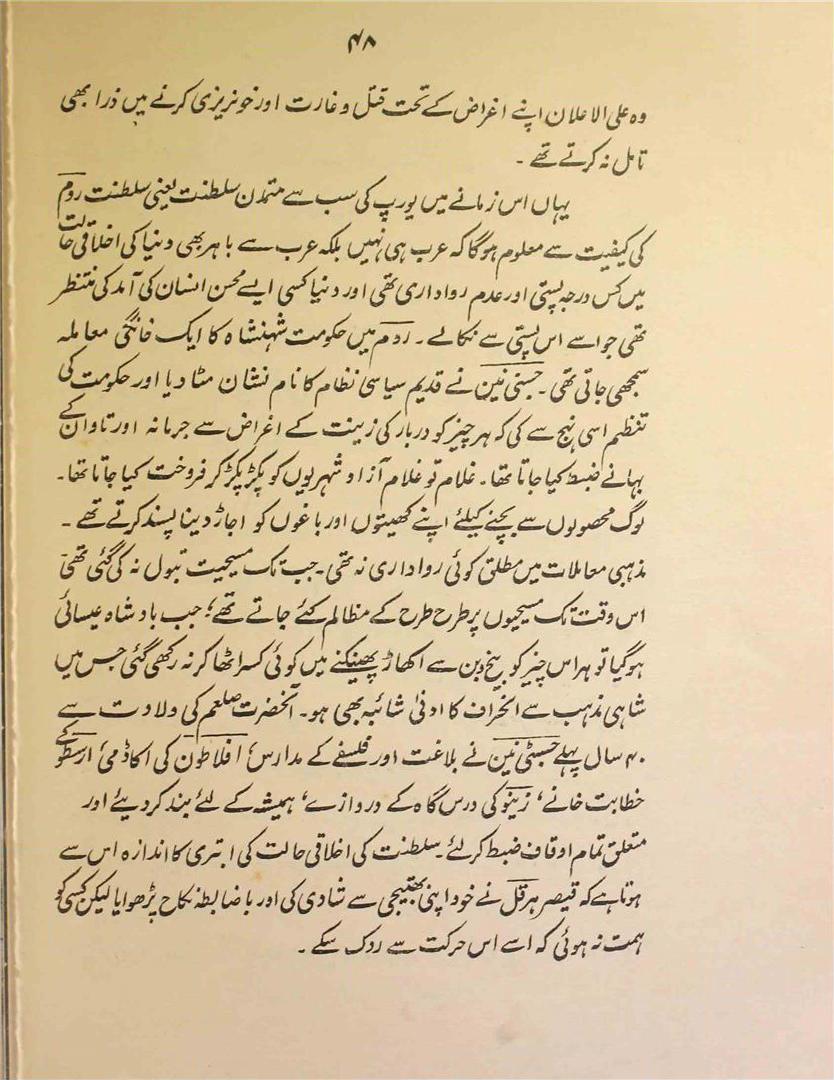 ۴۸
وہ علی الاعلان اپنے اغراض کے تحت قتل و غارت اور خونریزی کرنے میں ذرا بھی
تامل نہ کرتے تھے ۔
یہاں اس زمانے میں یورپ کی سب سے متمدن سلطنت یعنی سلطنت روم
کی کیفیت سے معلوم ہوگا کہ عرب ہی نہیں بلکہ عرب سے باہر بھی دنیا کی اخلاقی حالت
میں کس درجہ پستی اور عدم رواداری تھی اور دنیا کسی ایسے محسن انسان کی آمد کی منتظر
تھی جو اسے اس پستی سے نکالے ۔ روم میں حکومت شہنشاہ کا ایک خانگی معاملہ
سمجھی جاتی تھی ۔ جسٹی نین نے قدیم سیاسی نظام کا نام نشان مٹا دیا اور حکومت کی
تنظیم اسی نہج سے کی کہ ہر چیز کو دربار کی زینت کے اغراض سے جرمانہ اور تاوان کے
بہانے ضبط کیا جاتا تھا۔ غلام تو غلام آزاد شہریوں کو پکڑ پکڑ کر فروخت کیا جاتا تھا۔
لوگ محصولوں سے بچنے کیلئے اپنے کھیتوں اور باغوں کو اجاڑ دینا پسند کرتے تھے ۔
مذہبی معاملات میں مطلق کوئی رواداری نہ تھی ۔ جب تک مسیحیت قبول نہ کی گئی تھی
اس وقت تک مسیحیوں پر طرح طرح کے مظالم کئے جاتے تھے؛ جب بادشاہ عیسائی
ہوگیا تو ہر اس چیز کو بیخ و بن سے اکھاڑ پھینکنے میں کوئی کسر اٹھا کر نہ رکھی گئی جس میں
شاہی مذہب سے انحراف کا ادنیٰ شائبہ بھی ہو۔ آنحضرت صلعم کی ولادت سے
۴۰ سال پہلے جسٹی نین نے بلاغت اور فلسفے کے مدارس، افلاطون کی اکاڈمی، ارسطو کے
خطابت خانے، زینو کی درس گاہ کے دروازے، ہمیشہ کے لئے بند کر دیئے اور
متعلق تمام اوقاف ضبط کر لئے ۔ سلطنت کی اخلاقی حالت کی ابتری کا اندازہ اس سے
ہوتا ہے کہ قیصر ہرقل نے خود اپنی بھتیجی سے شادی کی اور باضابطہ نکاح پڑھوایا لیکن کسی کو
ہمت نہ ہوئی کہ اسے اس حرکت سے روک سکے ۔